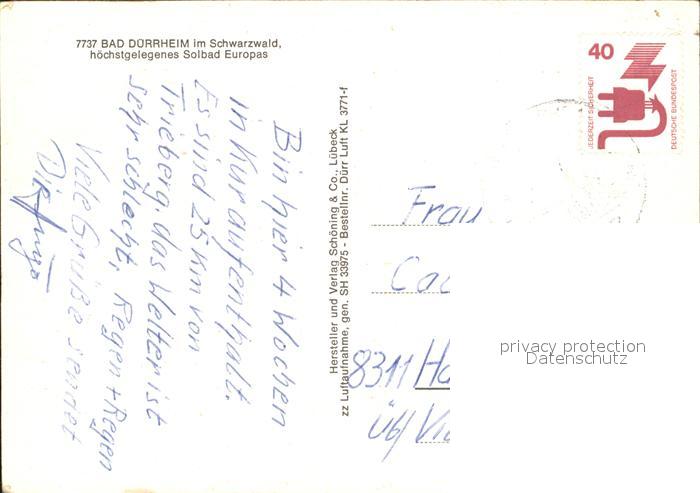 7737 BAD DÜRRHEIM im Schwarzwald,
höchstgelegenes Solbad Europas
Bin hier 4 Wochen
in Kuraufenthalt.
Es sind 25 km von
Trieberg. das Wetter ist
sehr schlecht, Regen + Regen
Viele Grüße sendet
Dir
Hersteller und Verlag Schöning & Co., Lübeck
zz Luftaufnahme, gen. SH 33975 - Bestellnr. Dürr Luft KL 3771-f
40
JEDERZEIT SICHERHEIT
DEUTSCHE BUNDESPOST
Frau
8311
üb/
privacy protection
Datenschutz